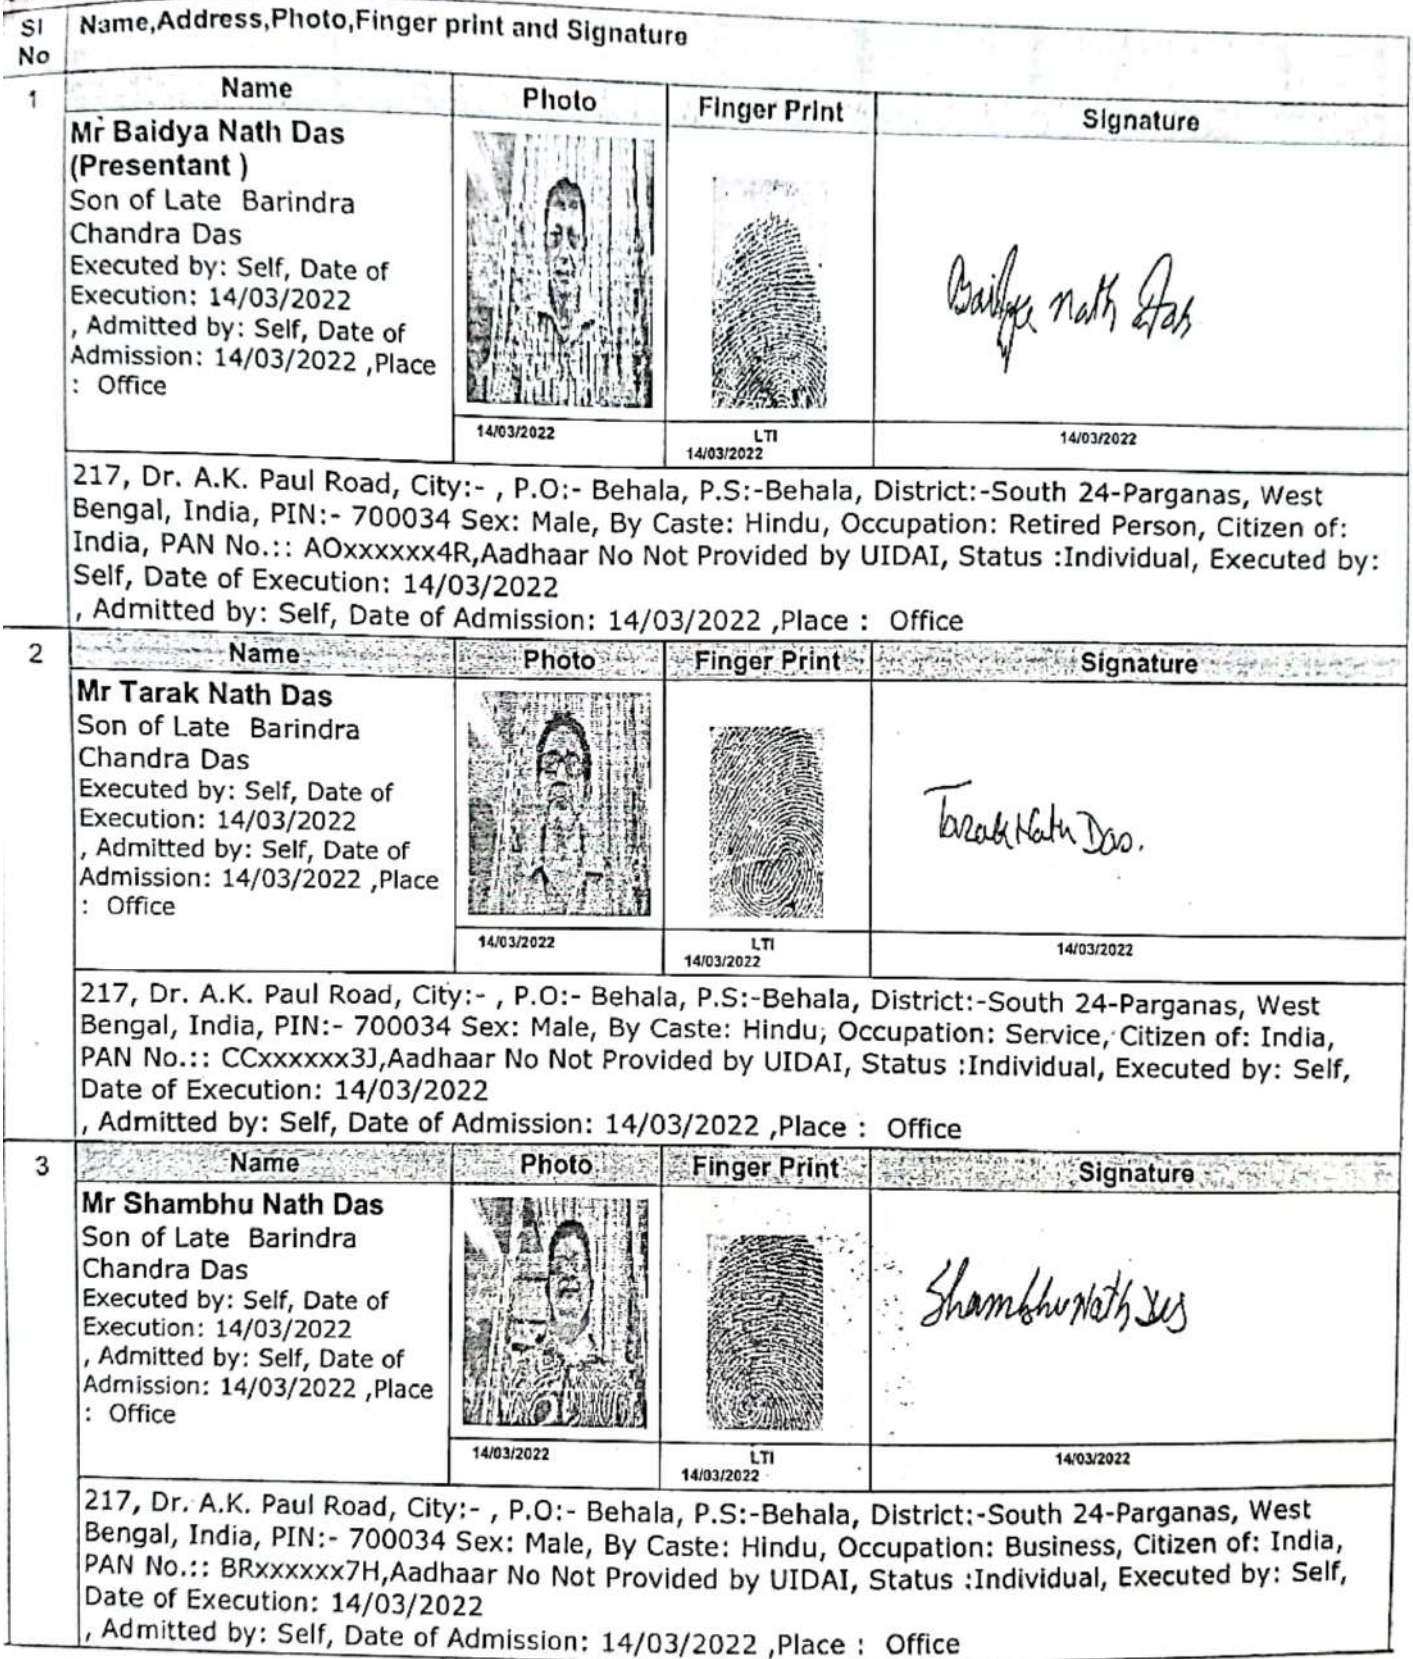 Sl No
Name,Address,Photo,Finger print and Signature
1
Name
Photo
Finger Print
Signature
Mr Baidya Nath Das
(Presentant )
Son of Late Barindra
Chandra Das
Executed by: Self, Date of
Execution: 14/03/2022
, Admitted by: Self, Date of
Admission: 14/03/2022 ,Place
: Office
Baidya Nath Das
14/03/2022
LTI
14/03/2022
14/03/2022
217, Dr. A.K. Paul Road, City:- , P.O:- Behala, P.S:-Behala, District:-South 24-Parganas, West
Bengal, India, PIN:- 700034 Sex: Male, By Caste: Hindu, Occupation: Retired Person, Citizen of:
India, PAN No.:: AOxxxxxx4R,Aadhaar No Not Provided by UIDAI, Status :Individual, Executed by:
Self, Date of Execution: 14/03/2022
, Admitted by: Self, Date of Admission: 14/03/2022 ,Place : Office
2
Name
Photo
Finger Print
Signature
Mr Tarak Nath Das
Son of Late Barindra
Chandra Das
Executed by: Self, Date of
Execution: 14/03/2022
, Admitted by: Self, Date of
Admission: 14/03/2022 ,Place
: Office
Tarak Nath Das.
14/03/2022
LTI
14/03/2022
14/03/2022
217, Dr. A.K. Paul Road, City:- , P.O:- Behala, P.S:-Behala, District:-South 24-Parganas, West
Bengal, India, PIN:- 700034 Sex: Male, By Caste: Hindu, Occupation: Service, Citizen of: India,
PAN No.:: CCxxxxxx3J,Aadhaar No Not Provided by UIDAI, Status :Individual, Executed by: Self,
Date of Execution: 14/03/2022
, Admitted by: Self, Date of Admission: 14/03/2022 ,Place : Office
3
Name
Photo
Finger Print
Signature
Mr Shambhu Nath Das
Son of Late Barindra
Chandra Das
Executed by: Self, Date of
Execution: 14/03/2022
, Admitted by: Self, Date of
Admission: 14/03/2022 ,Place
: Office
Shambhu Nath Das
14/03/2022
LTI
14/03/2022
14/03/2022
217, Dr. A.K. Paul Road, City:- , P.O:- Behala, P.S:-Behala, District:-South 24-Parganas, West
Bengal, India, PIN:- 700034 Sex: Male, By Caste: Hindu, Occupation: Business, Citizen of: India,
PAN No.:: BRxxxxxx7H,Aadhaar No Not Provided by UIDAI, Status :Individual, Executed by: Self,
Date of Execution: 14/03/2022
, Admitted by: Self, Date of Admission: 14/03/2022 ,Place : Office